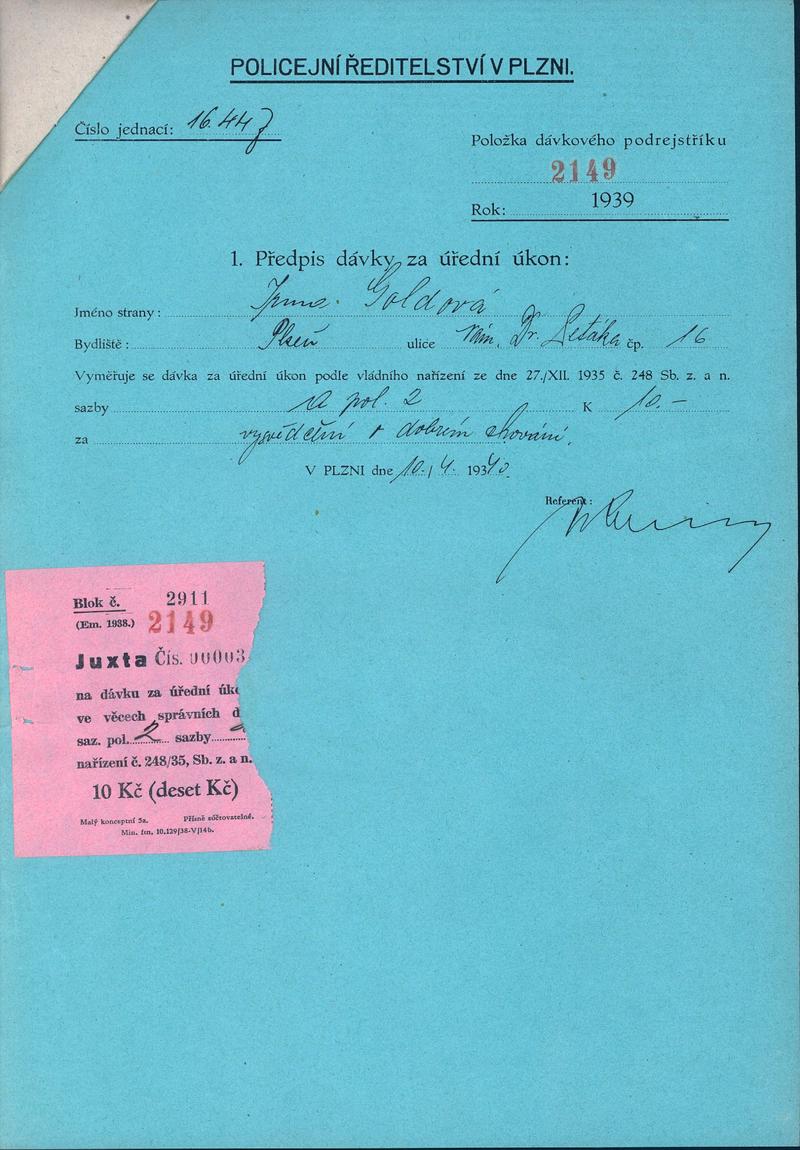 POLICEJNÍ ŘEDITELSTVÍ V PLZNI.
Číslo jednací: 16.447
Položka dávkového podrejstříku
2149
Rok: 1939
1. Předpis dávky za úřední úkon:
Jméno strany: Goldová
Bydliště: Plzeň ulice nám. Dr. Pešáka čp. 16
Vyměřuje se dávka za úřední úkon podle vládního nařízení ze dne 27./XII. 1935 č. 248 Sb. z. a n.
sazby a pol. 2 K 10.-
za vysvědčení o dobrém chování.
V PLZNI dne 10./4. 1940.
Referent:
Blok č. 2911
(Em. 1938.) 2149
Juxta Čís. 00003
na dávku za úřední úk
ve věcech správních d
saz. pol. 2 sazby
nařízení č. 248/35, Sb. z. a n.
10 Kč (deset Kč)
Malý konceptní 5a. Přísně zúčtovatelné.
Min. fin. 10.129/38-V/14b.